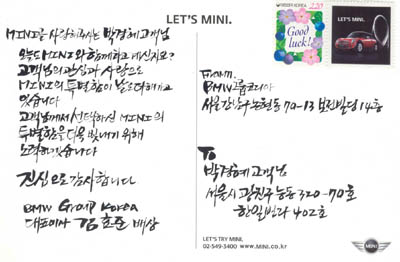 LET'S MINI.
MINI를 사랑하시는 박경혜 고객님
오늘도 MINI와 함께하고 계신지요?
고객님의 관심과 사랑으로
MINI의 특별함이 날로 더해가고
있습니다
고객님께서 선택하신 MINI의
특별함을 더욱 빛내기 위해
노력하겠습니다
진심으로 감사합니다
BMW Group Korea
대표이사 김효준 배상
KOREA
220
Good
luck!
LET'S MINI.
From.
BMW그룹코리아
서울 강남구 논현동 70-13 보전빌딩 14층
To
박경혜 고객님
서울시 광진구 능동 320-70호
한일빌라 402호
LET'S TRY MINI.
02-549-3400 www.MINI.co.kr
MINI